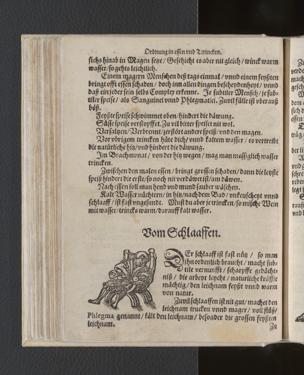 Ordnung in essen vnd Trincken.
sichs hinab in Magen setzt / Geschicht es aber nit gleich / trinck warm
wasser / so gehts leichtlich.
Einem magern Menschen deß tags einmal / vnnd einem feyßten
bringt offt essen schaden / doch inn allen dingen bescheydenheyt / vnnd
daß ein jeder sein selbs Complex erkenne. Je subtiler Mensch / je sub-
tiler speiß / als Sanguinei vnnd Phlegmatici. Zuvil fülle ist vberauß
böß.
Feyßte speiß schwimmet oben / hindert die däwung.
Süsse speiß verstopffet. Zu vil bitter speiset nit wol.
Versaltzen / Verbrennt / zerstört ander speiß / vnd den magen.
Vor vbrigem trincken hüte dich / vnnd kaltem wasser / es vertreibt
die natürliche hitz / vnnd hindert die däwung.
Im Brachmonat / von der hitz wegen / mag man mässiglich wasser
trincken.
Zwischen den malen essen / bringt grossen schaden / dann die letste
speiß hindert die erste / so noch nit verdäwet ist / im däwen.
Nach essen soll man hend vnnd mund sauber wäschen.
Kalt Wasser nüchtern / in hitz / nach dem Bad / vnkeuscheyt vnnd
schlaaff / ist fast vngesundt. Must du aber je trincken / so misch Wein
mit wasser / trincks warm / darauff kalt wasser.
Vom Schlaaffen.
DEr schlaaff ist fast nütz / so man
ihn ordenlich braucht / macht sub-
tile vernunfft / scharpffe gedächt-
niß / die arbeyt leycht / natürliche kräffte
mächtig / den leichnam feyßt vnnd warm
von natur.
Zuvil schlaaffen ist nit gut / machet den
leichnam trucken vnnd mager / voll flüß /
Phlegma genannt / kält den leichnam / besonder die grossen feyßten
leichnam. Zu